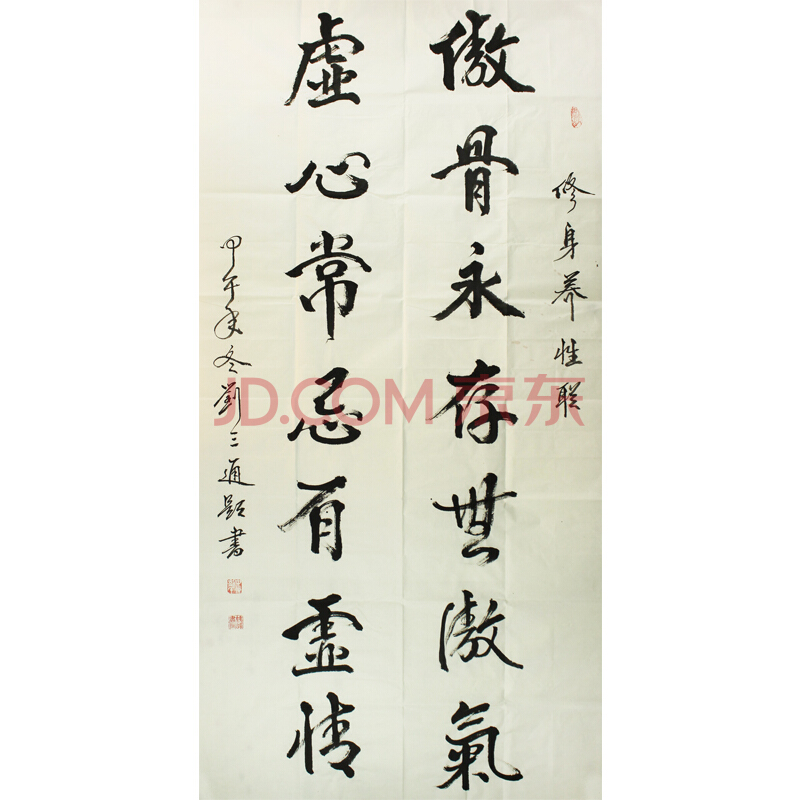 修身养性联
傲骨永存無傲氣
虛心常忌有虛情
甲午年冬劉三通題書
JD.COM 京东